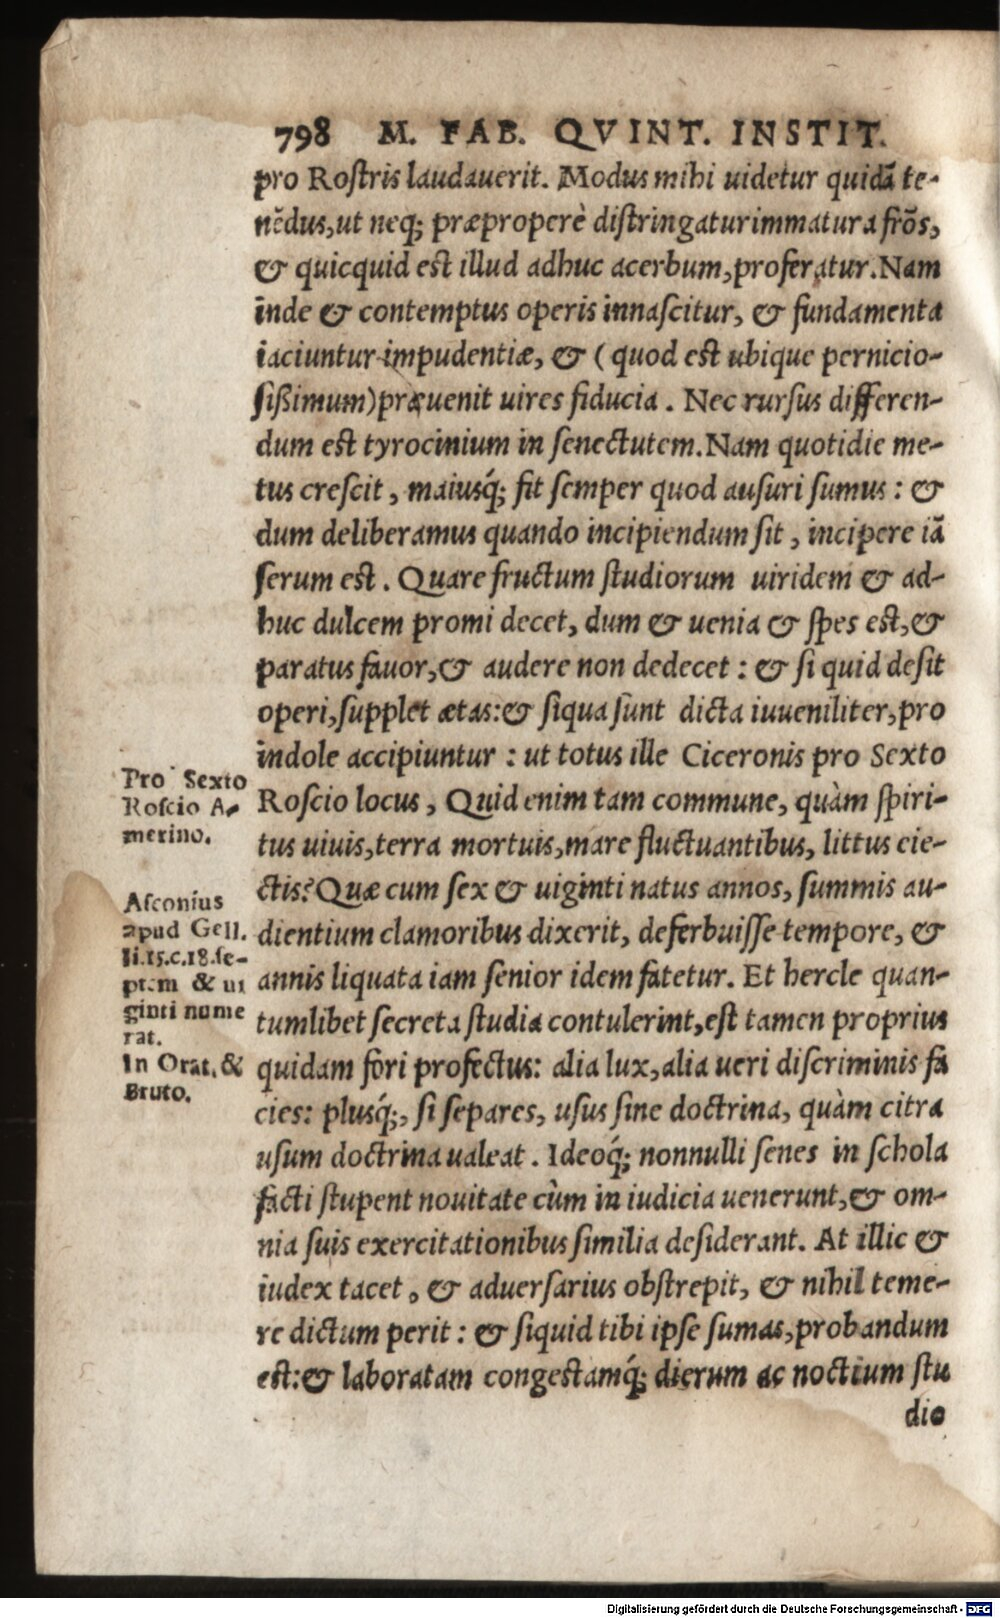 798 M. FAB. QVINT. INSTIT.
pro Roſtris laudauerit. Modus mihi uidetur quidā te-
nēdus, ut neq; præproperè diſtringatur immatura frōs,
& quicquid est illud adhuc acerbum, proferatur. Nam
inde & contemptus operis innaſcitur, & fundamenta
iaciuntur impudentiæ, & (quod est ubique pernicio-
ſißimum) præuenit uires fiducia. Nec rurſus differen-
dum est tyrocinium in ſenectutem. Nam quotidie me-
tus creſcit, maiusq́; fit ſemper quod auſuri ſumus: &
dum deliberamus quando incipiendum ſit, incipere iā
ſerum est. Quare fructum ſtudiorum uiridem & ad-
huc dulcem promi decet, dum & uenia & ſpes est, &
paratus fauor, & audere non dedecet: & ſi quid deſit
operi, ſupplet ætas: & ſiqua ſunt dicta iuueniliter, pro
indole accipiuntur: ut totus ille Ciceronis pro Sexto
Pro Sexto
Roſcio A-
merino.
Roſcio locus, Quid enim tam commune, quàm ſpiri-
tus uiuis, terra mortuis, mare fluctuantibus, littus eie-
ctis? Quæ cum ſex & uiginti natus annos, ſummis au-
Aſconius
apud Gell.
li.15.c.18.ſe-
ptem & ui
ginti nume
rat.
In Orat. &
Bruto.
dientium clamoribus dixerit, deferbuiſſe tempore, &
annis liquata iam ſenior idem fatetur. Et hercle quan-
tumlibet ſecreta ſtudia contulerint, est tamen proprius
quidam fori profectus: alia lux, alia ueri diſcriminis fa
cies: plusq́;, ſi ſepares, uſus ſine doctrina, quàm citra
uſum doctrina ualeat. Ideoq́; nonnulli ſenes in ſchola
facti ſtupent nouitate cùm in iudicia uenerunt, & om-
nia ſuis exercitationibus ſimilia deſiderant. At illic &
iudex tacet, & aduerſarius obſtrepit, & nihil teme-
re dictum perit: & ſiquid tibi ipſe ſumas, probandum
est: & laboratam congestamq́; dierum ac noctium ſtu
dio
Digitalisierung gefördert durch die Deutsche Forschungsgemeinschaft - DFG